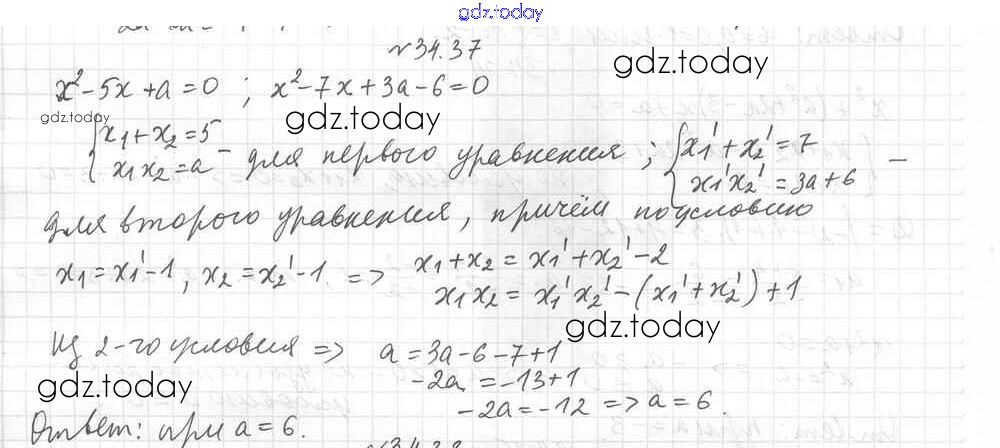 gdz.today
№34.37
gdz.today
x²-5x+a=0 ; x²-7x+3a-6=0
gdz.today
gdz.today
{x₁+x₂=5
x₁x₂=a - для первого уравнения; {x₁'+x₂'=7
x₁'x₂'=3a+6 -
для второго уравнения, причём по условию
x₁=x₁'-1, x₂=x₂'-1 => x₁+x₂=x₁'+x₂'-2
x₁x₂=x₁'x₂'-(x₁'+x₂')+1
gdz.today
Из 2-го условия => a=3a-6-7+1
gdz.today
-2a=-13+1
-2a=-12 => a=6.
Ответ: при a=6.